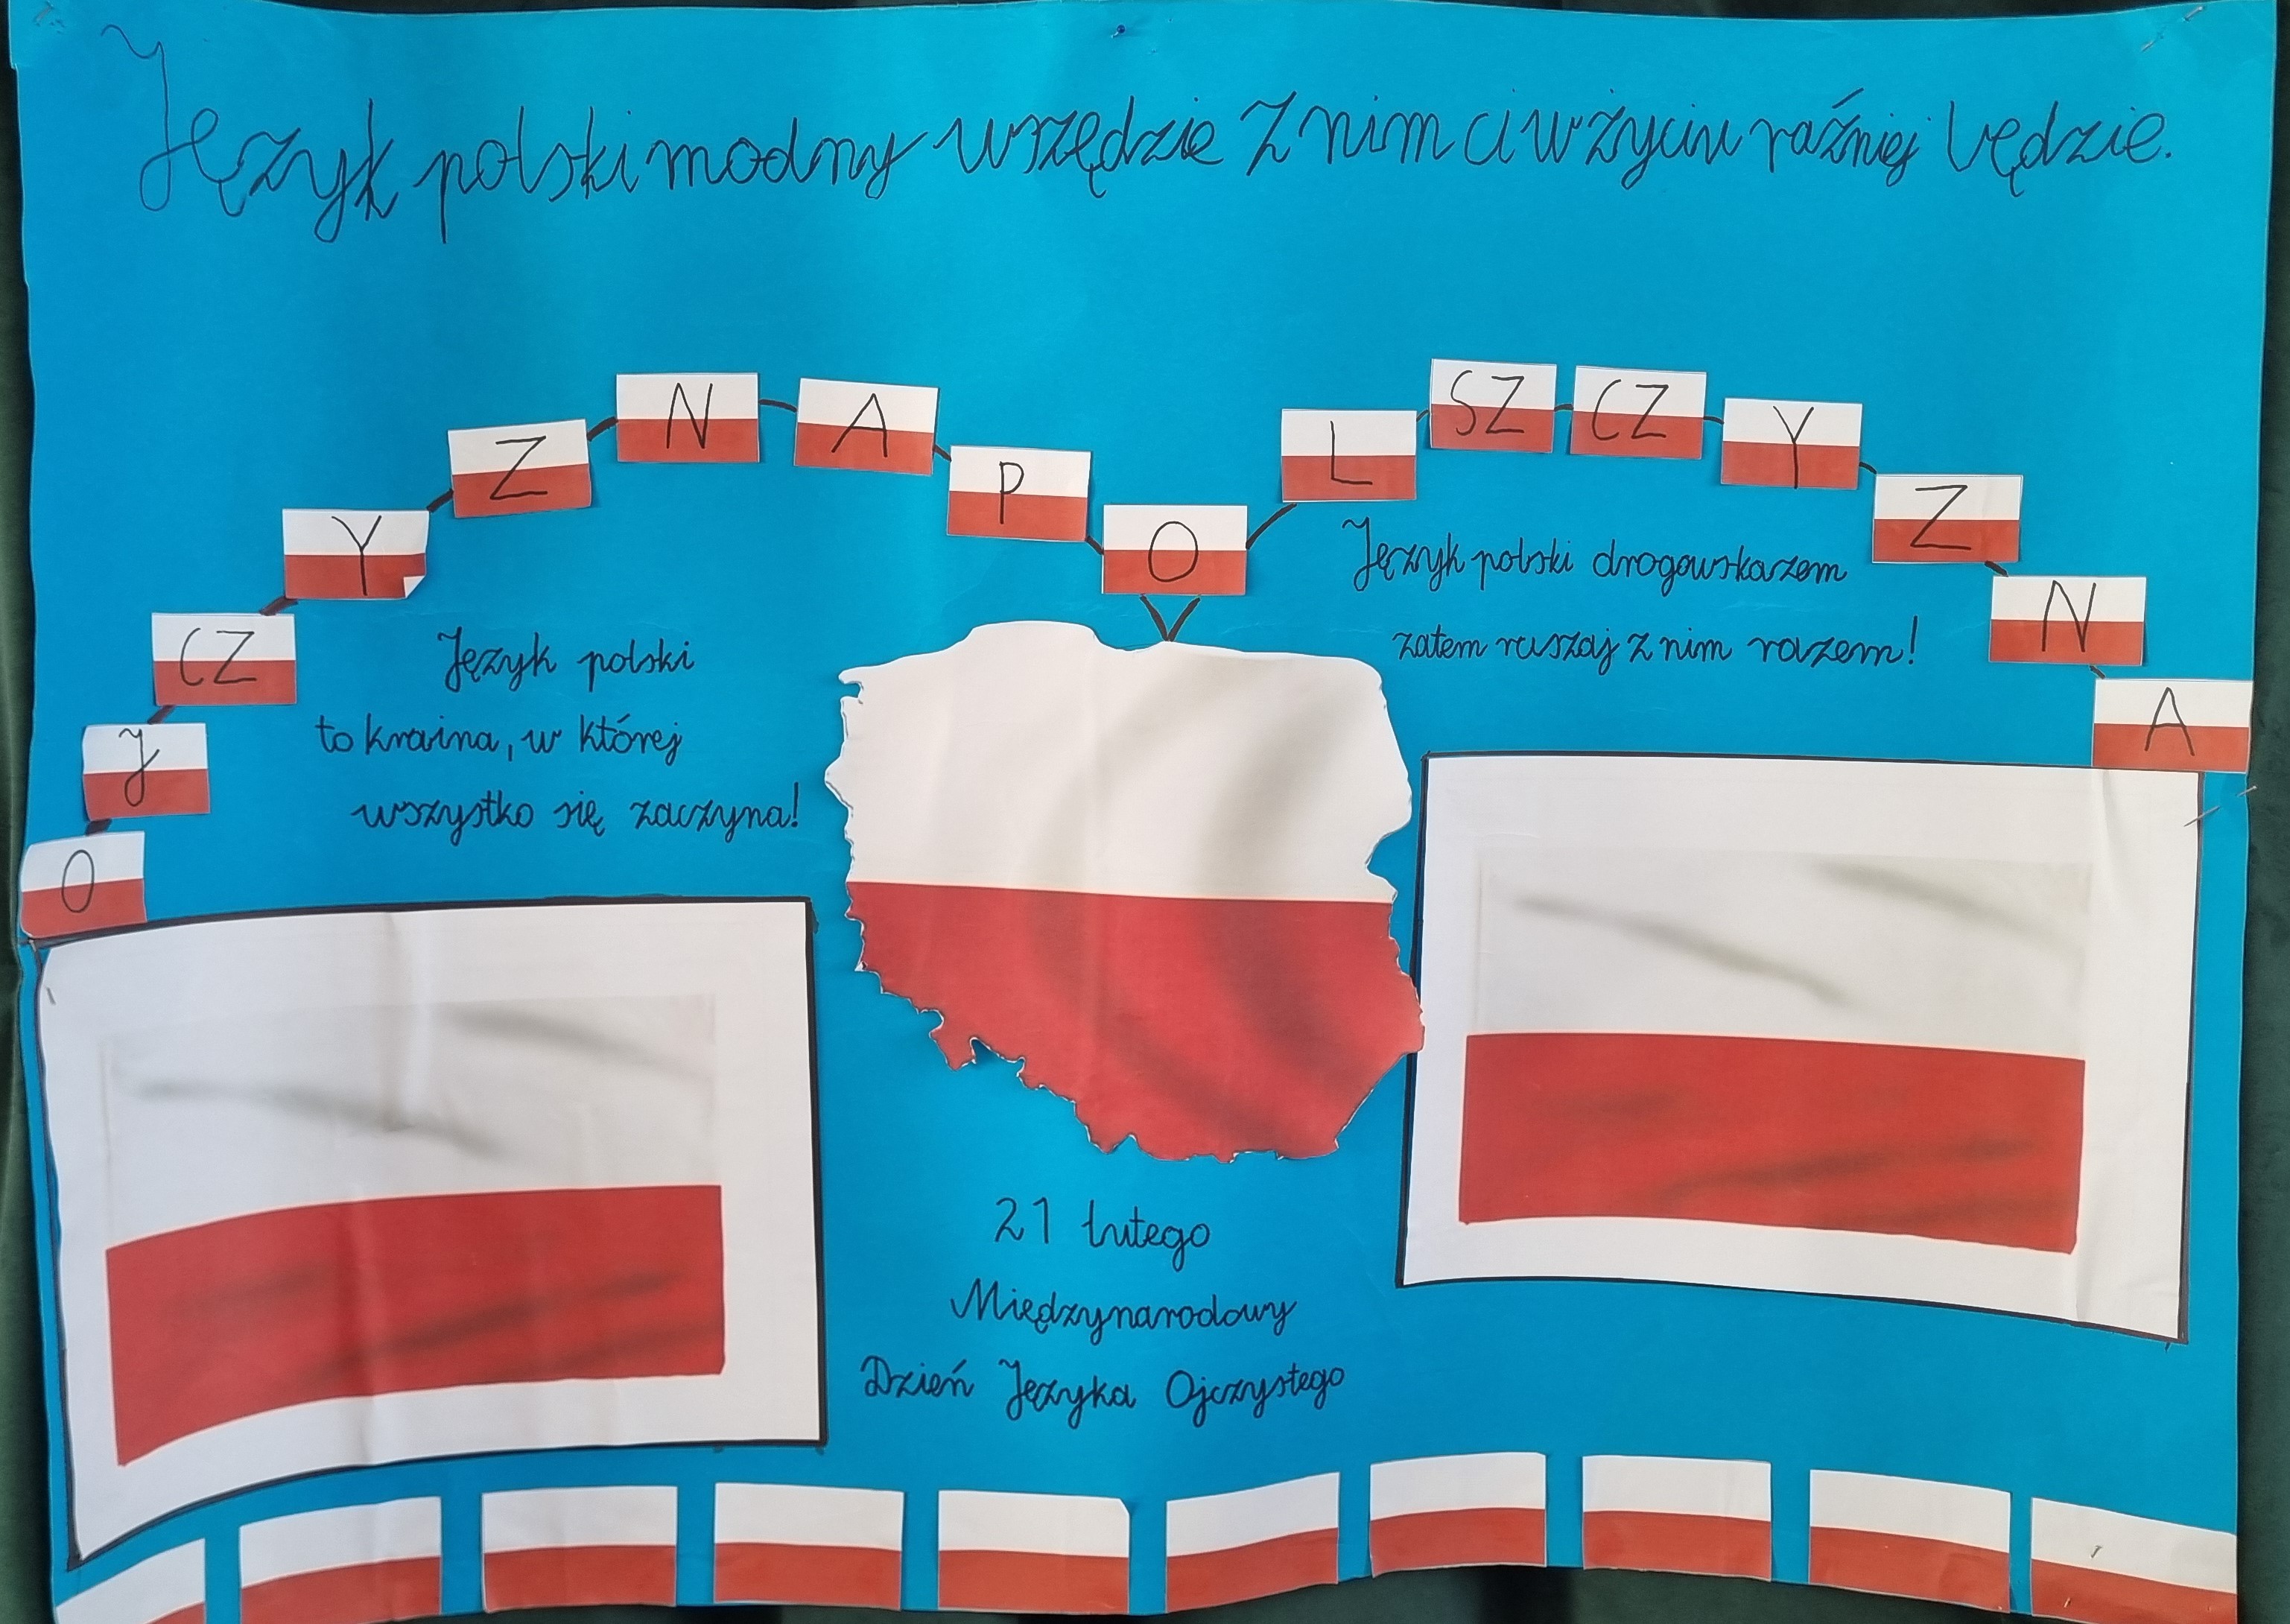 Język polski modny wszędzie Z nim ci w życiu raźniej będzie.
O J CZ Y Z N A P O L SZ CZ Y Z N A
Język polski
to kraina, w której
wszystko się zaczyna!
Język polski drogowskazem
zatem ruszaj z nim razem!
21 lutego
Międzynarodowy
Dzień Języka Ojczystego